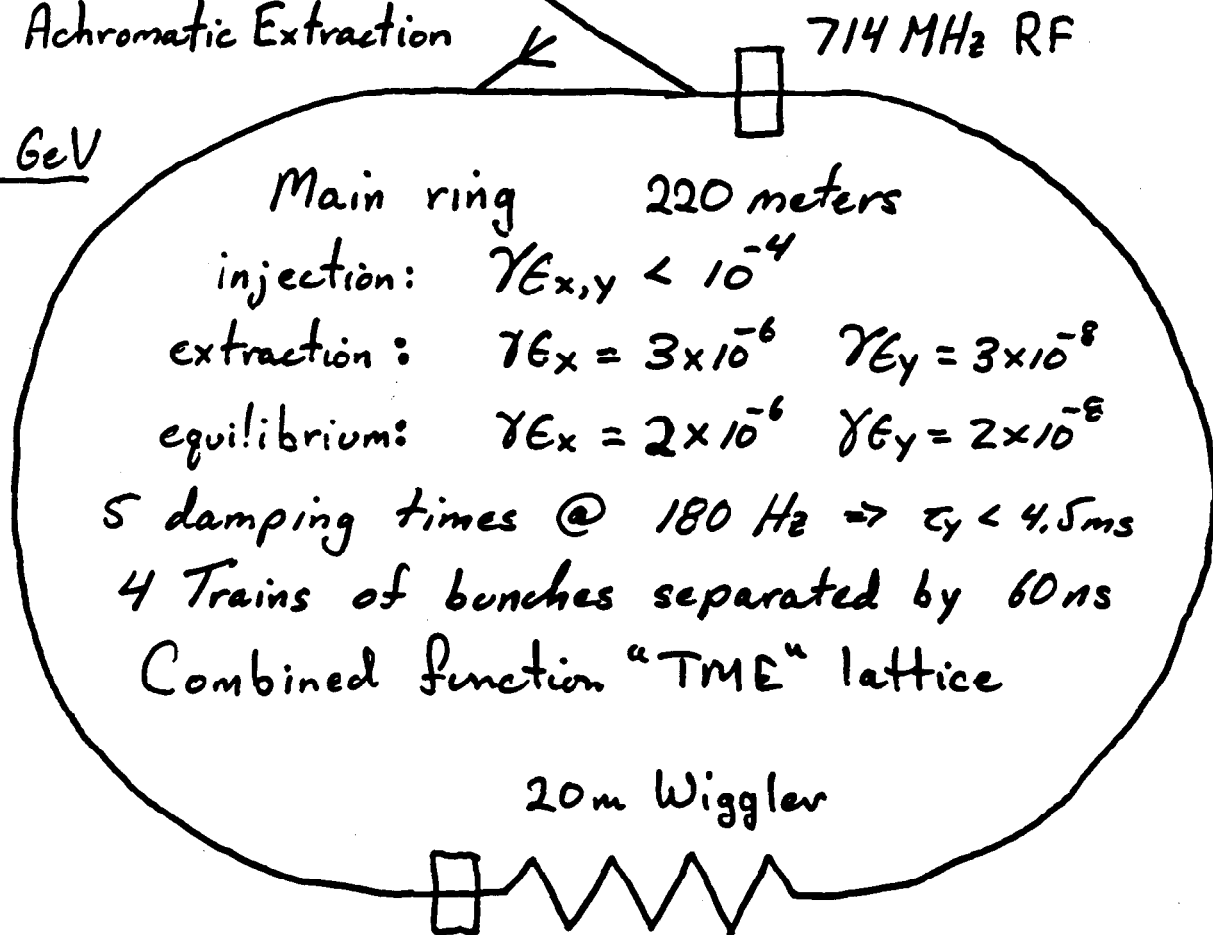 Achromatic Extraction
714 MHz RF
GeV
Main ring 220 meters
injection: γϵx,y < 10⁻⁴
extraction: γϵx = 3×10⁻⁶ γϵy = 3×10⁻⁸
equilibrium: γϵx = 2×10⁻⁶ γϵy = 2×10⁻⁸
5 damping times @ 180 Hz => τy < 4.5ms
4 Trains of bunches separated by 60ns
Combined function "TME" lattice
20m Wiggler